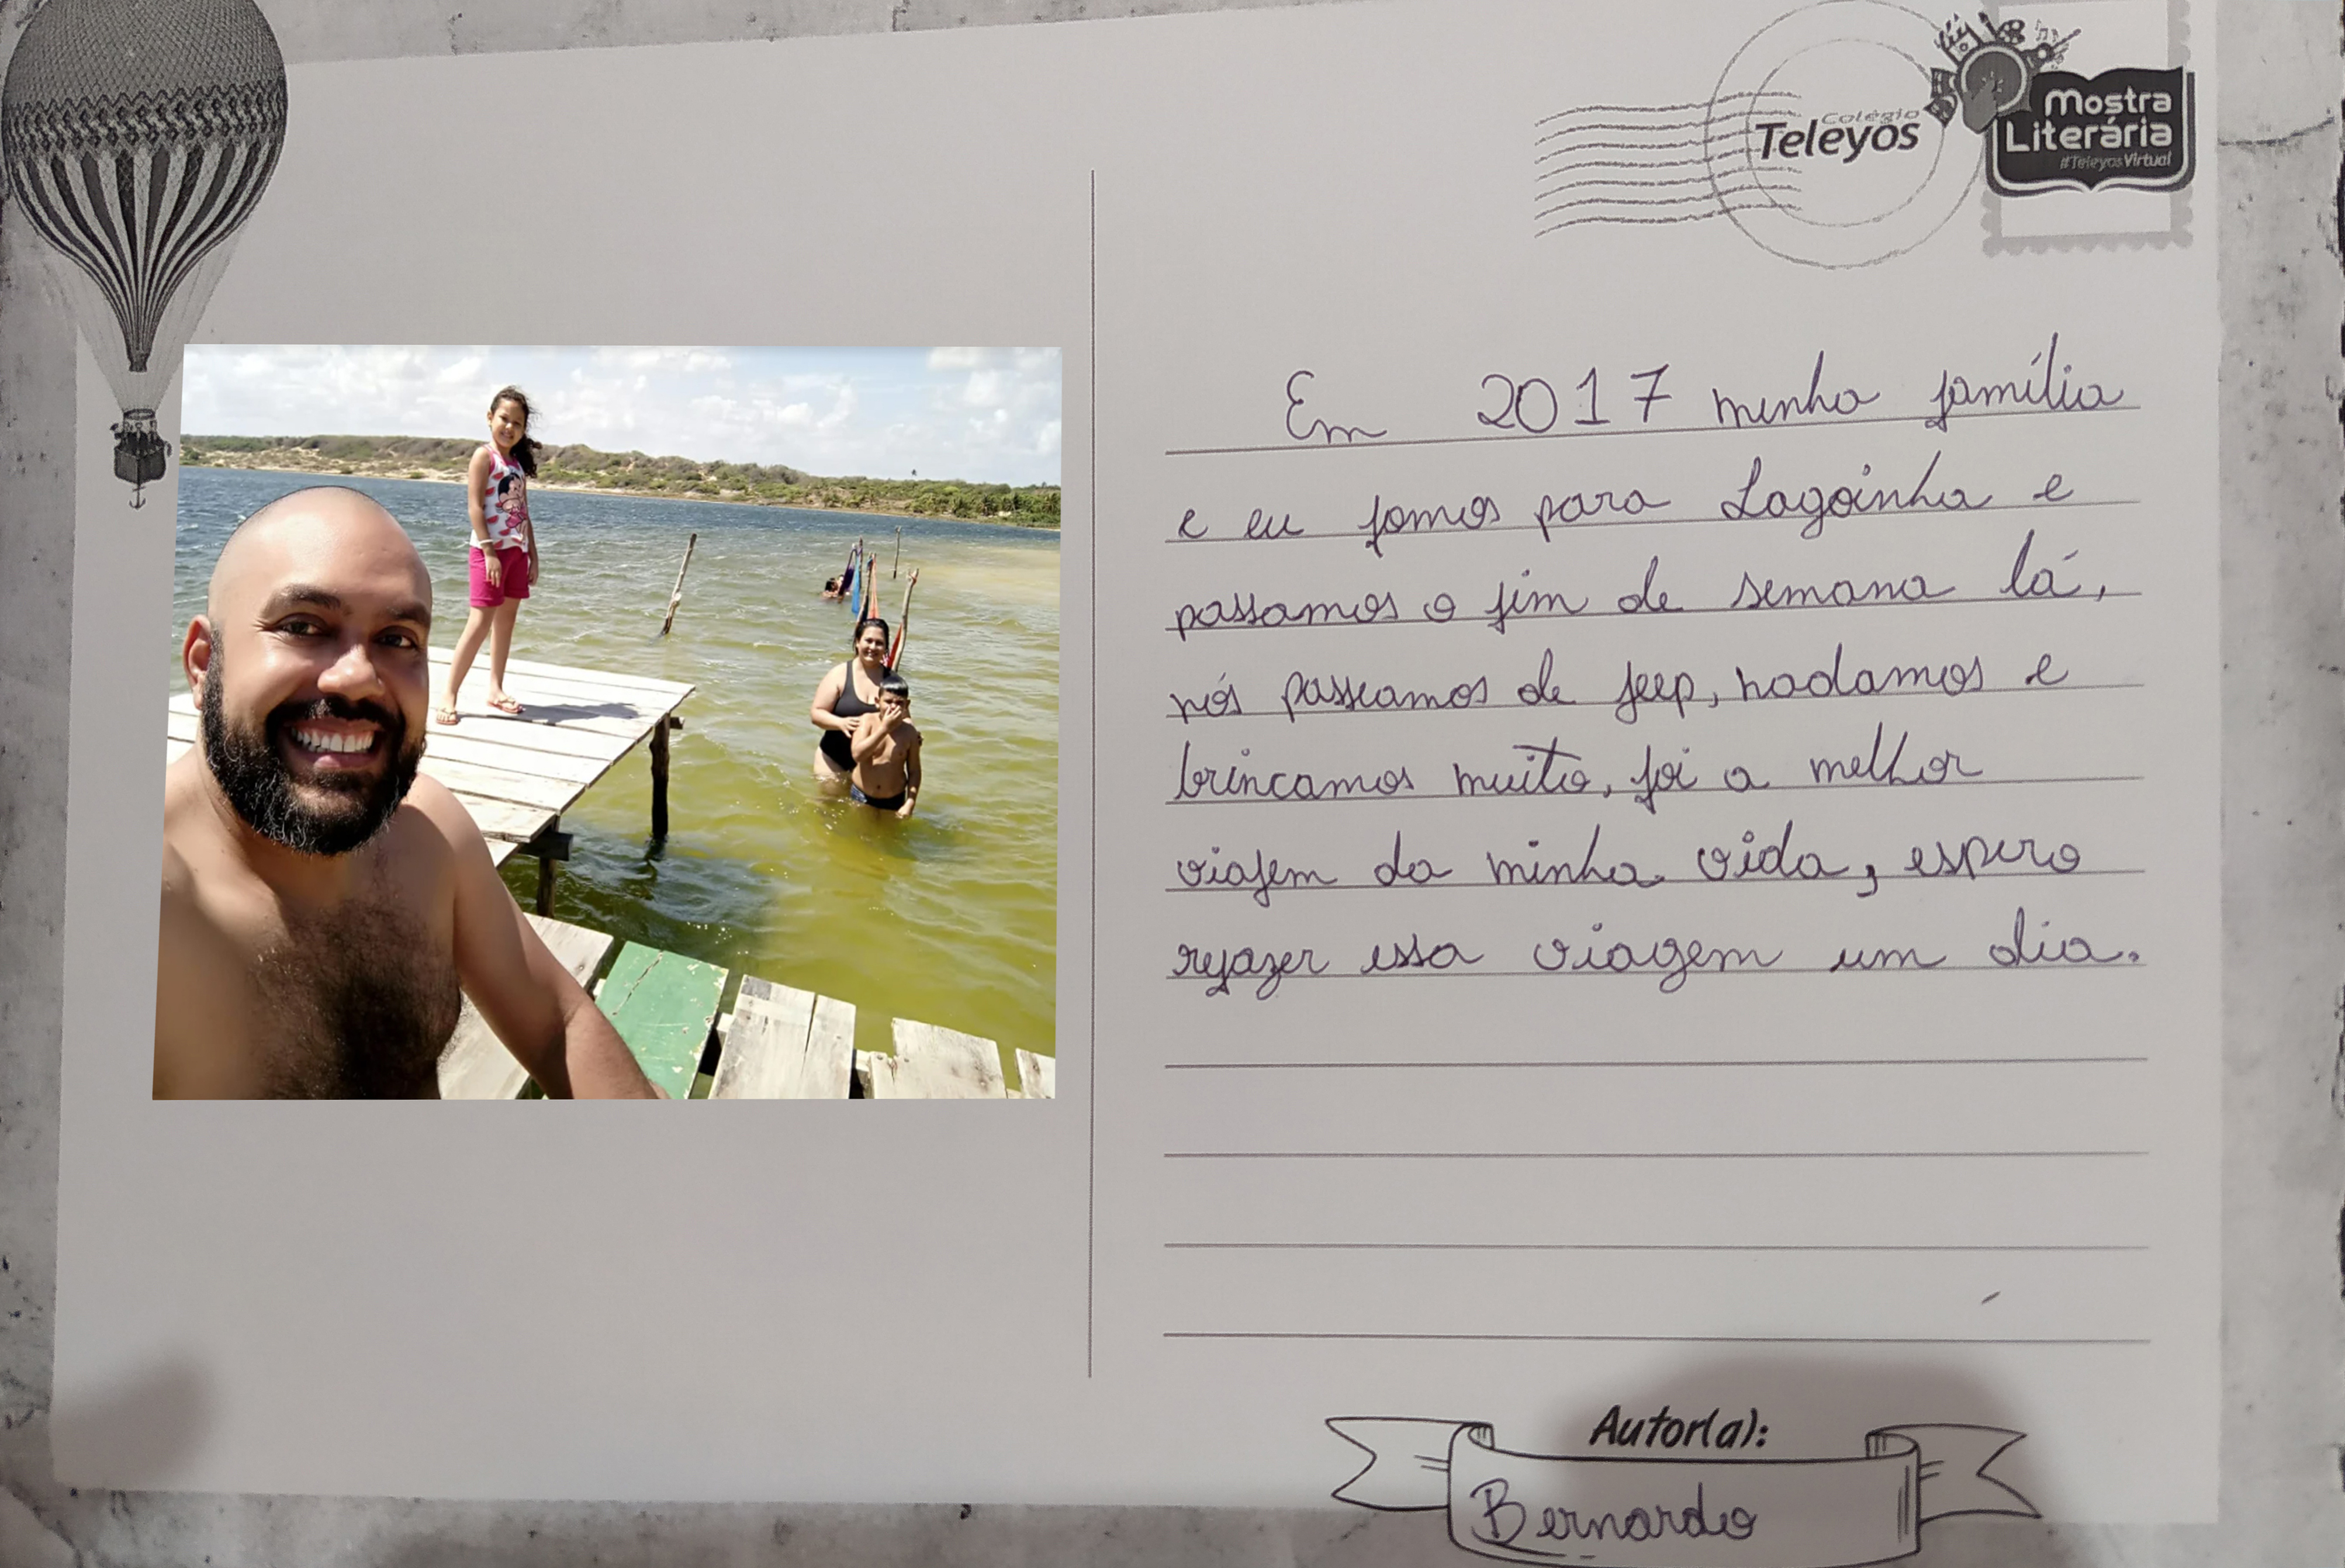 Colégio
Teleyos
Mostra
Literária
#TeleyosVirtual
Em 2017 minha família
e eu fomos para Lagoinha e
passamos o fim de semana lá,
nós passeamos de jeep, nadamos e
brincamos muito, foi a melhor
viajem da minha vida, espero
refazer essa viagem um dia.
Autor(a):
Bernardo